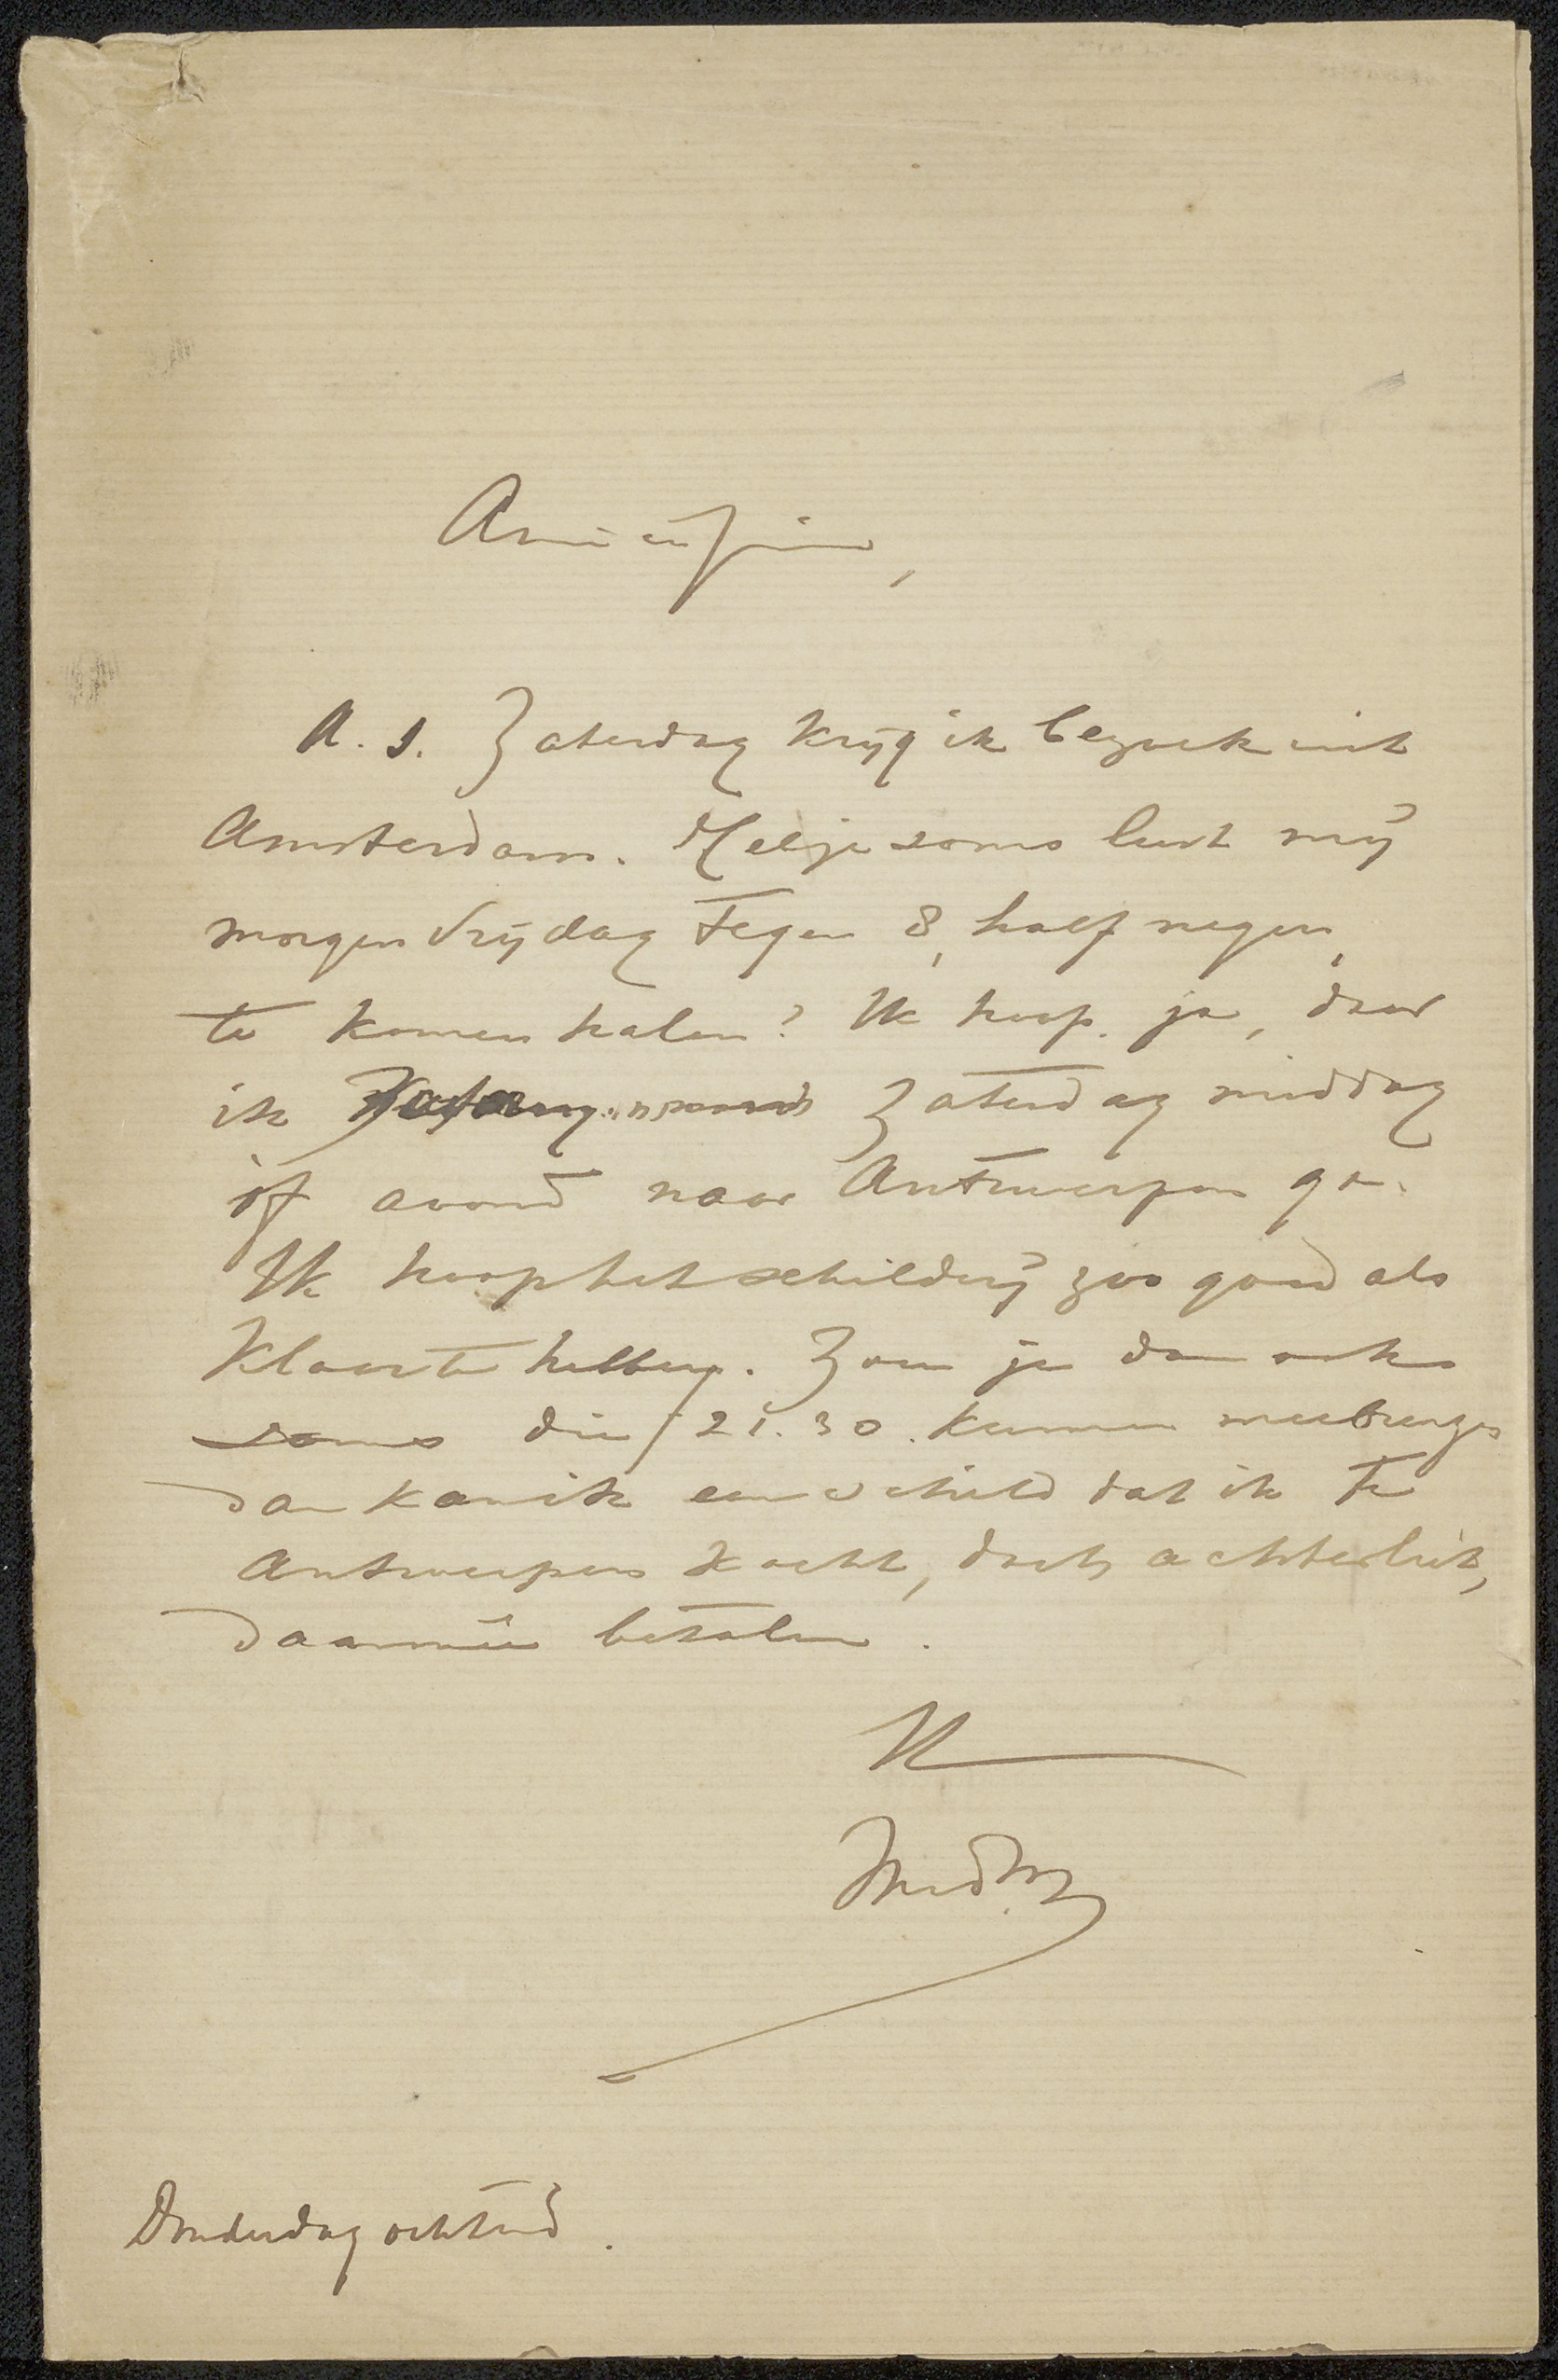 Amicissime,
A.s. Zaterdag krijg ik bezoek uit
Amsterdam. Heb je soms lust mij
morgen Vrijdag tegen 8, half negen,
te komen halen? Ik hoop ja, daar
ik Zaterdag middag
òf avond naar Antwerpen ga.
Ik hoop het schilderij zoo goed als
klaar te hebben. Zou je dan ook
soms die f 21.30 kunnen meebrengen
dan kan ik een schild dat ik te
Antwerpen kocht, doch achterliet,
daarmêe betalen.
Donderdag ochtend.